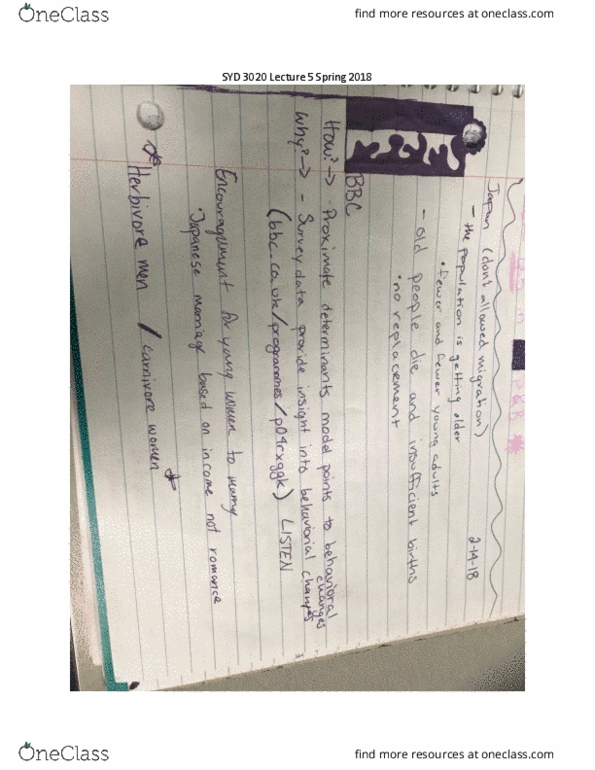 OneClass
find more resources at oneclass.com
SYD 3020 Lecture 5 Spring 2018
2-14-18
Japan (don't allowed migration)
- the population is getting older
• fewer and fewer young adults
- old people die and insufficient births
• no replacement
BBC
How? → - Proximate determinants model points to behavioral changes
Why? → - Survey data provide insight into behaviorial changes
(bbc.co.uk/programmes/p04rxggk) LISTEN
Encouragement for young women to marry
• Japanese marriage based on income not romance
* Herbivore men / carnivore women *
OneClass
find more resources at oneclass.com